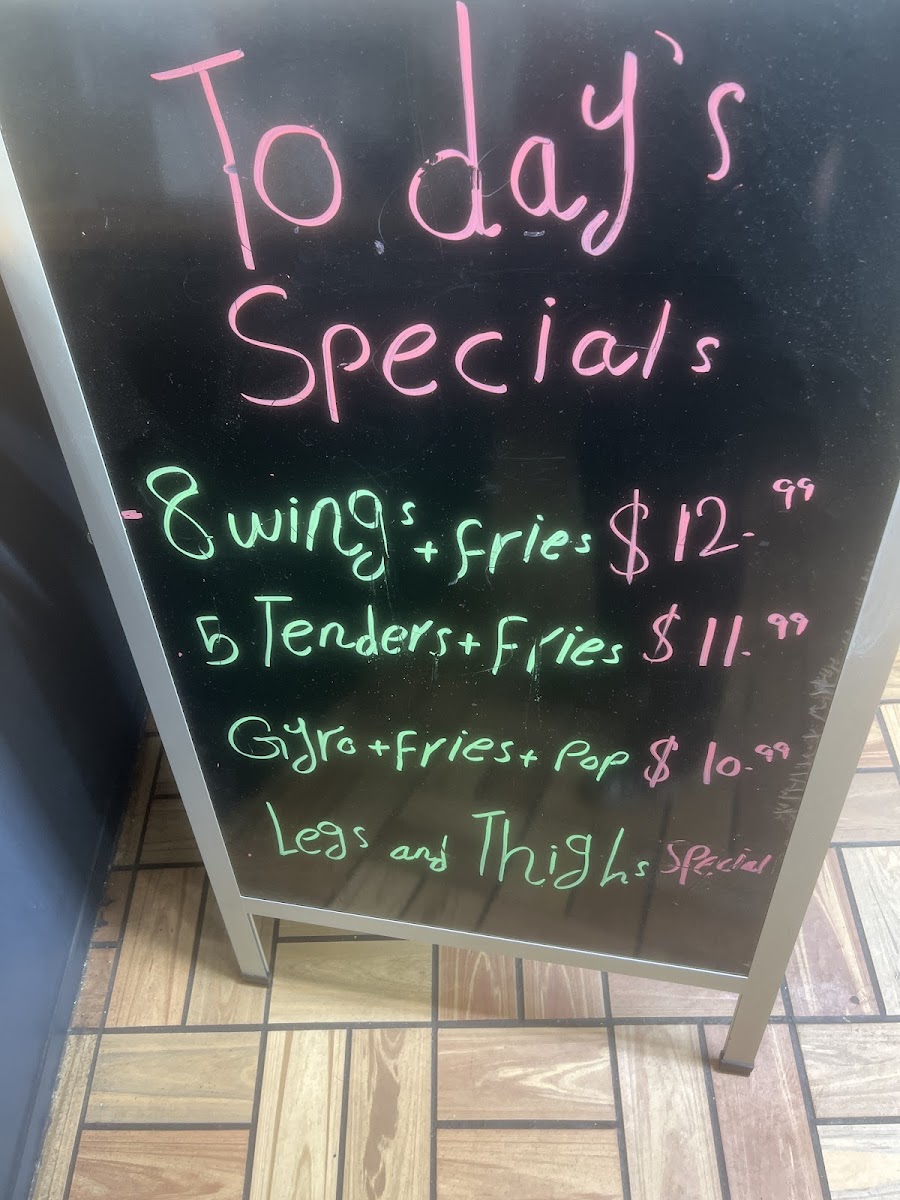 Today's
Specials
-8 wings + fries $12.99
5 Tenders + fries $11.99
Gyro + fries + pop $10.99
Legs and Thighs special